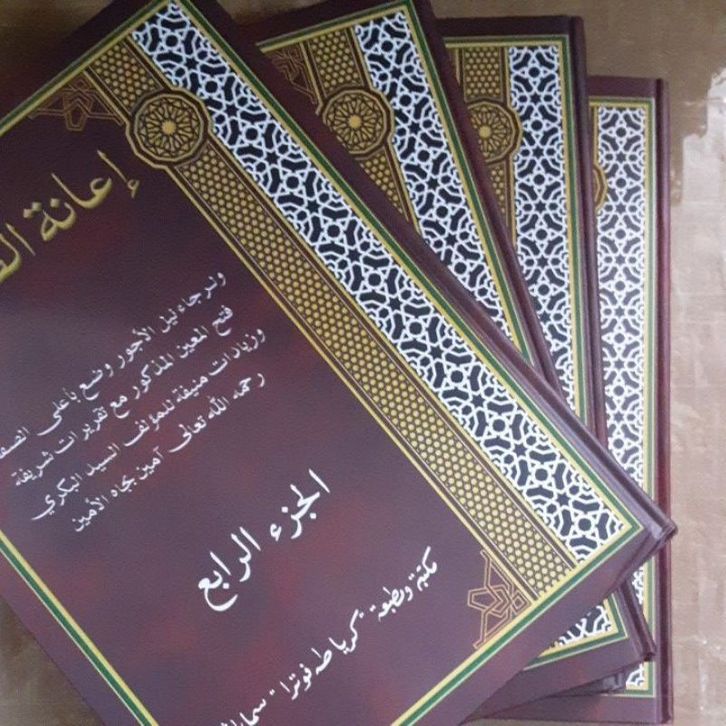 إعانة
ولرجاء نيل الأجور وضع بأعلى
فتح المعين المذكور مع تقريرات شريفة
وزيادات منيفة للمؤلف السيد البكري
رحمه الله تعالى آمين بجاه الأمين
الجزء الرابع
مكتبة ومطبعة "كرياطه فوترا"